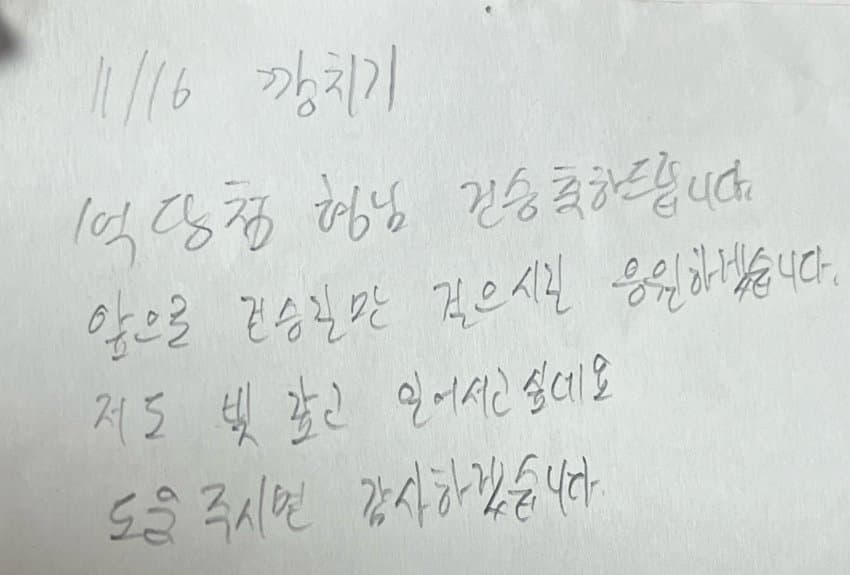 11/16 깡치기
1억 당첨 형님 건승 축하드립니다.
앞으로 건승길만 걸으시길 응원하겠습니다.
저도 빛 갚고 일어서고싶네요
도움 주시면 감사하겠습니다.